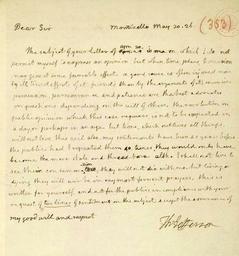 Dear Sir Monticello May 20. 26. (353)
The subject of your letter of Apr. 20. is one on which I do not
permit myself to express an opinion, but when time, place & occasion
may give it some favorable effect. a good cause is often injured more
by ill timed efforts of it's friends than by the arguments of it's enemies.
persuasion, perseverance and patience are the best advocates
on questions depending on the will of others. the revolution in
public opinion which this case requires, is not to be expected in
a day or perhaps in an age. but time, which outlives all things,
will outlive this evil also. my sentiments have been 40 years before
the public. had I repeated them 40 times, they would only have
become the more stale and thread-bare. altho I shall not live to
see them consummated, they will not die with me. but living or
dying they will ever be in my most fervent prayers. this is
written for yourself, and not for the public in compliance with your
request of two lines of sentiment on the subject. accept the assurance of
my good will and respect
Th: Jefferson